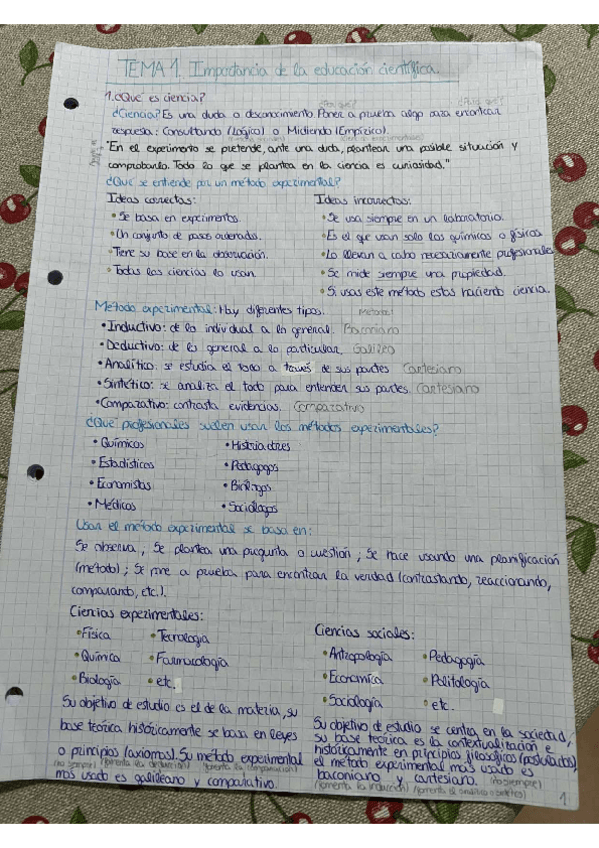 TEMA 1. Importancia de la educación científica.
1. ¿Qué es ciencia?
¿Ciencia? Es una duda o desconocimiento. Poner a prueba algo para encontrar
respuesta: Consultando (Lógica) o Midiendo (Empírico).
"En el experimento se pretende, ante una duda, plantear una posible situación y
comprobarla. Todo lo que se plantea en la ciencia es curiosidad."
¿Qué se entiende por un método experimental?
Ideas correctas:
• Se basa en experimentos.
• Un conjunto de pasos ordenados.
• Tiene su base en la observación.
• Todas las ciencias lo usan.
Ideas incorrectas:
• Se usa siempre en un laboratorio.
• Es el que usan solo los químicos o físicos
• Lo llevan a cabo necesariamente profesionales
• Se mide siempre una propiedad.
• Si usas este método estas haciendo ciencia.
Método experimental: Hay diferentes tipos.
• Inductivo: de lo individual a lo general. Baconiano
• Deductivo: de lo general a lo particular. Galileo
• Analítico: se estudia el todo a través de sus partes Cartesiano
• Sintético: se analiza el todo para entender sus partes. Cartesiano
• Comparativo: contrasta evidencias. Comparativo
¿Qué profesionales suelen usar los métodos experimentales?
• Químicos
• Estadísticos
• Economistas
• Médicos
• Historiadores
• Pedagogos
• Biólogos
• Sociólogos
Usar el método experimental se basa en:
Se observa; Se plantea una pregunta o cuestión; Se hace usando una planificación
(método); Se pone a prueba para encontrar la verdad (contrastando, reaccionando,
comparando, etc.).
Ciencias experimentales:
• Física
• Química
• Biología
• Tecnología
• Farmacología
• etc.
Su objetivo de estudio es el de la materia, su
base teórica históricamente se basa en leyes
o principios (axiomas). Su método experimental
(no siempre) (fomenta la deducción) (fomenta la comparación)
más usado es galileano y comparativo.
Ciencias sociales:
• Antropología
• Economía
• Sociología
• Pedagogía
• Politología
• etc.
Su objetivo de estudio se centra en la sociedad,
su base teórica es la contextualización e
históricamente en principios filosóficos (postulados),
el método experimental más usado es
baconiano y cartesiano. (no siempre)
(fomenta la inducción) (fomenta el analítico o sintético)
1